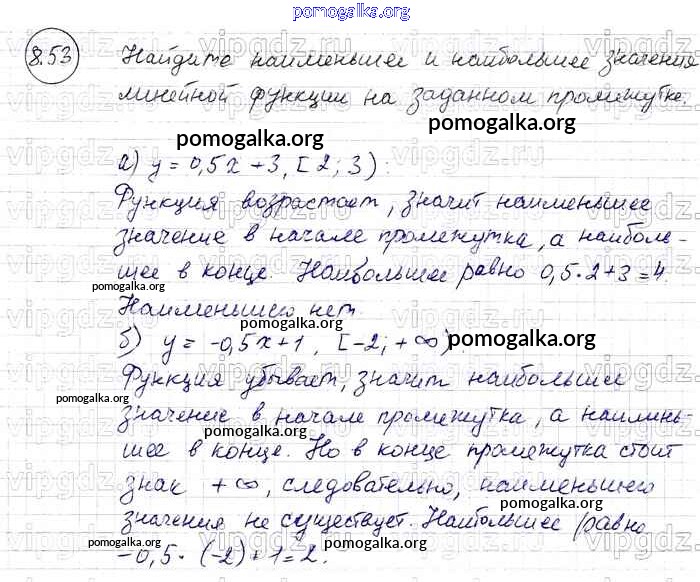 pomogalka.org
8.53 Найдите наименьшее и наибольшее значения
линейной функции на заданном промежутке.
pomogalka.org
pomogalka.org
а) y = 0,5x + 3, [2; 3) :
Функция возрастает, значит наименьшее
значение в начале промежутка, а наиболь-
шее в конце. Наибольшее равно 0,5·2+3=4.
Наименьшего нет.
pomogalka.org
pomogalka.org
б) y = -0,5x+1, [-2; +∞) :
Функция убывает, значит наибольшее
pomogalka.org
значение в начале промежутка, а наимень-
pomogalka.org
шее в конце. Но в конце промежутка стоит
знак +∞, следовательно, наименьшего
pomogalka.org
значения не существует. Наибольшее равно
pomogalka.org
pomogalka.org
-0,5·(-2)+1=2.